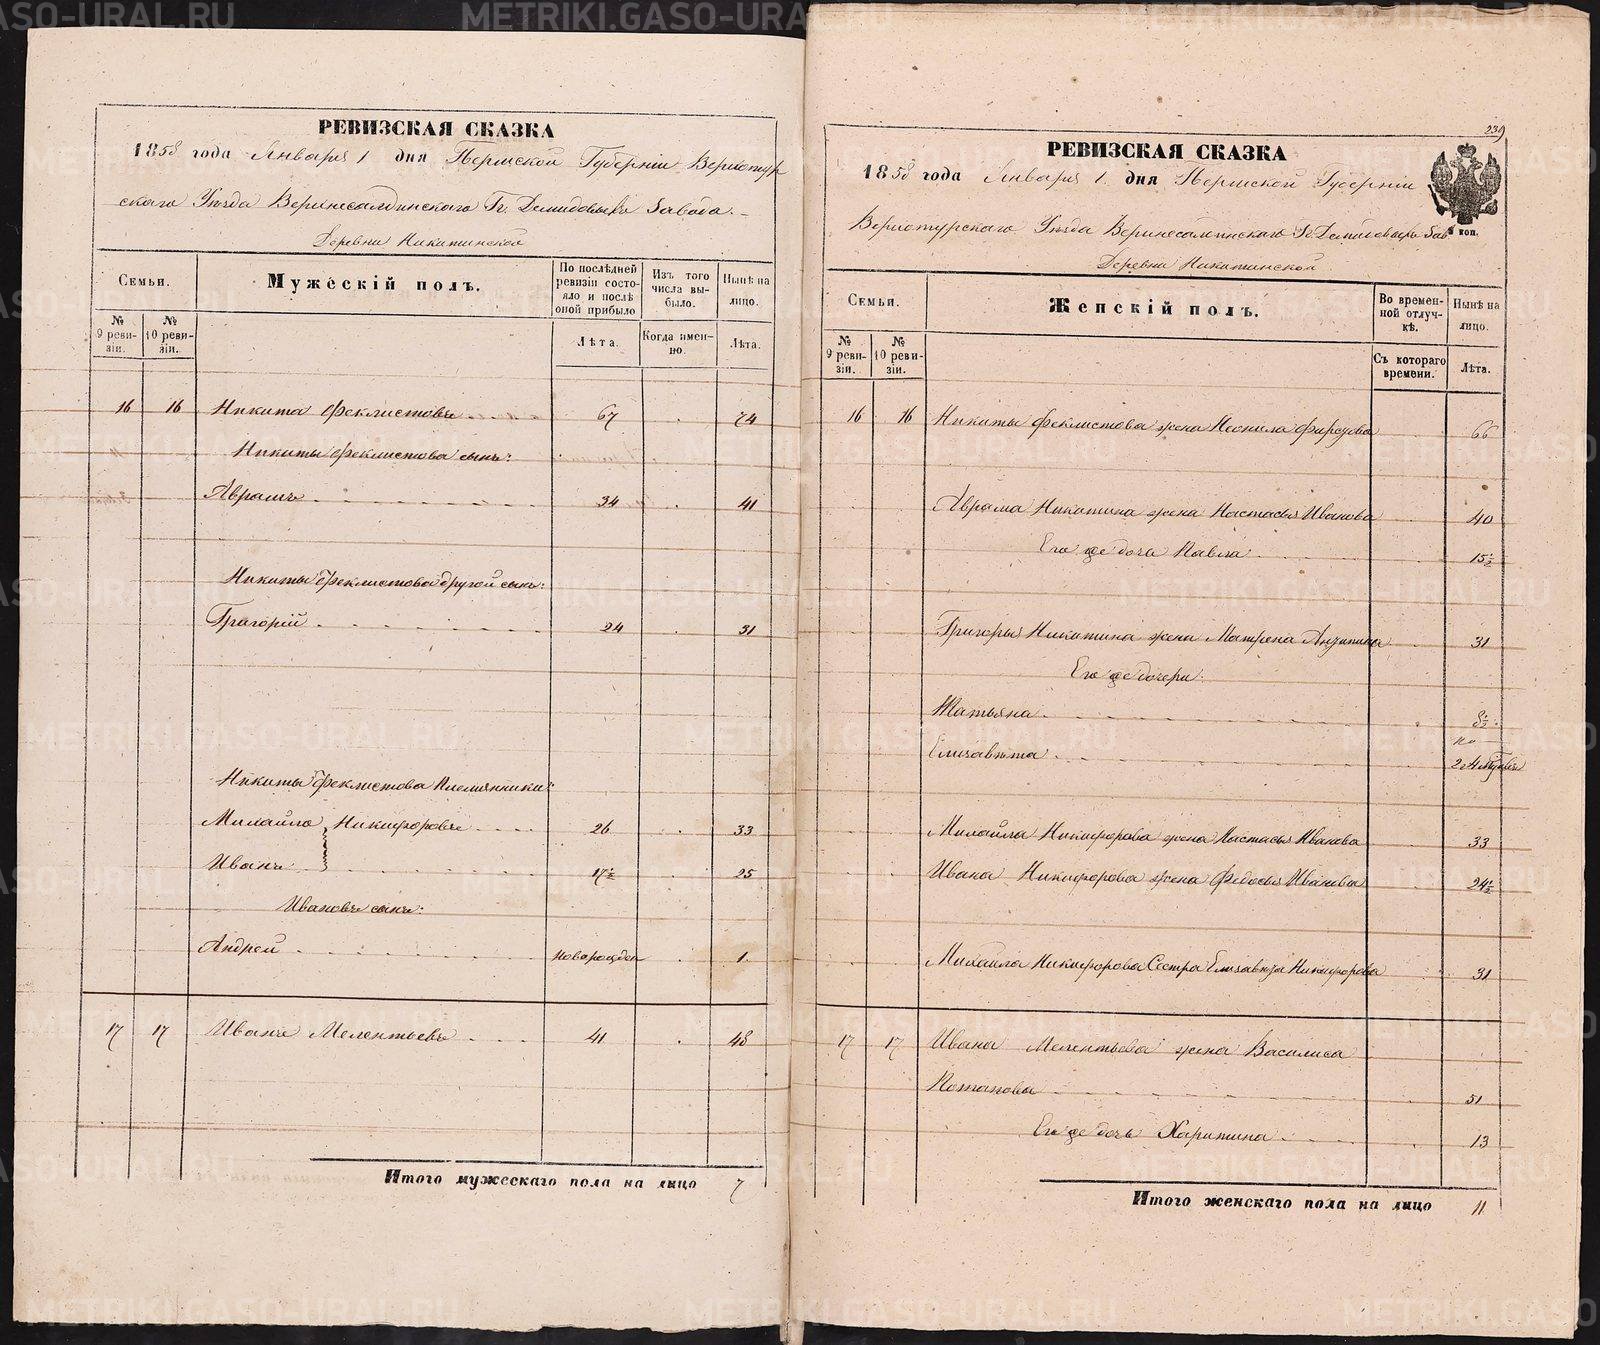 РЕВИЗСКАЯ СКАЗКА
1858 года Января 1 дня Пермской Губерніи Верхотур
скаго Уѣзда Верхнесалдинскаго Гг. Демидовыхъ Завода.
Деревни Никитинской
Семьи.
Мужескій полъ.
По послѣдней ревизіи состояло и послѣ оной прибыло
Изъ того числа выбыло.
Нынѣ на лицо.
№ 9 ревизіи.
№ 10 ревизіи.
Лѣта.
Когда именно.
Лѣта.
16 16 Никита Феклистовъ 67 74
Никиты Феклистова сынъ:
Аврамъ 34 41
Никиты Феклистова другой сынъ:
Грагорій 24 31
Никиты Феклистова Племянники:
Михайло Никифоровъ 26 33
Иванъ 17½ 25
Ивановъ сынъ:
Андрей новорожден 1.
17 17 Иванъ Мелентьевъ 41 48
Итого мужескаго пола на лицо 7
239
РЕВИЗСКАЯ СКАЗКА
1858 года Января 1. дня Пермской Губерніи
Верхотурскаго Уѣзда Верхнесалдинскаго Гг. Демидовыхъ Зав.
коп.
Деревни Никитинской
Семьи.
Женскій полъ.
Во временной отлучкѣ.
Нынѣ на лицо.
№ 9 ревизіи.
№ 10 ревизіи.
Съ котораго времени.
Лѣта.
16 16 Никиты Феклистова жена Неонила Фирсова 66
Аврама Никитина жена Настасья Иванова 40
Его же дочь Павла 15½
Григорья Никитина жена Матрена Антипина 31
Его же дочери:
Татьяна 8½
Елизавета 2
Михайла Никифорова жена Настасья Иванова 33
Ивана Никифорова жена Федосья Иванова 24½
Михайла Никифорова Сестра Елизавета Никифорова 31
17 17 Ивана Мелентьева жена Василиса
Потапова 51
Его же дочь Харитина 13
Итого женскаго пола на лицо 11
METRIKI.GASO-URAL.RU